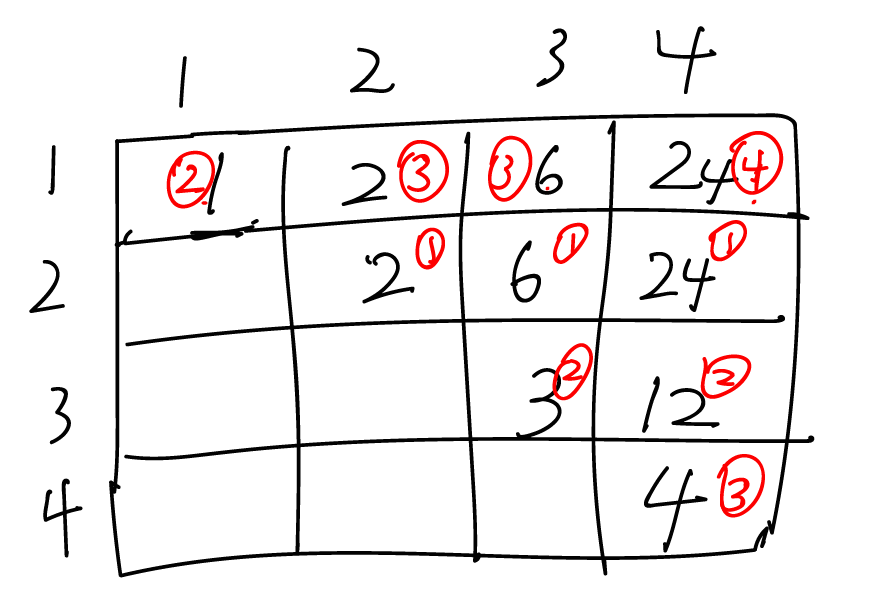 1 2 3 4
1 ②1 2③ ③6 24④
2 2① 6① 24①
3 3② 12②
4 4③